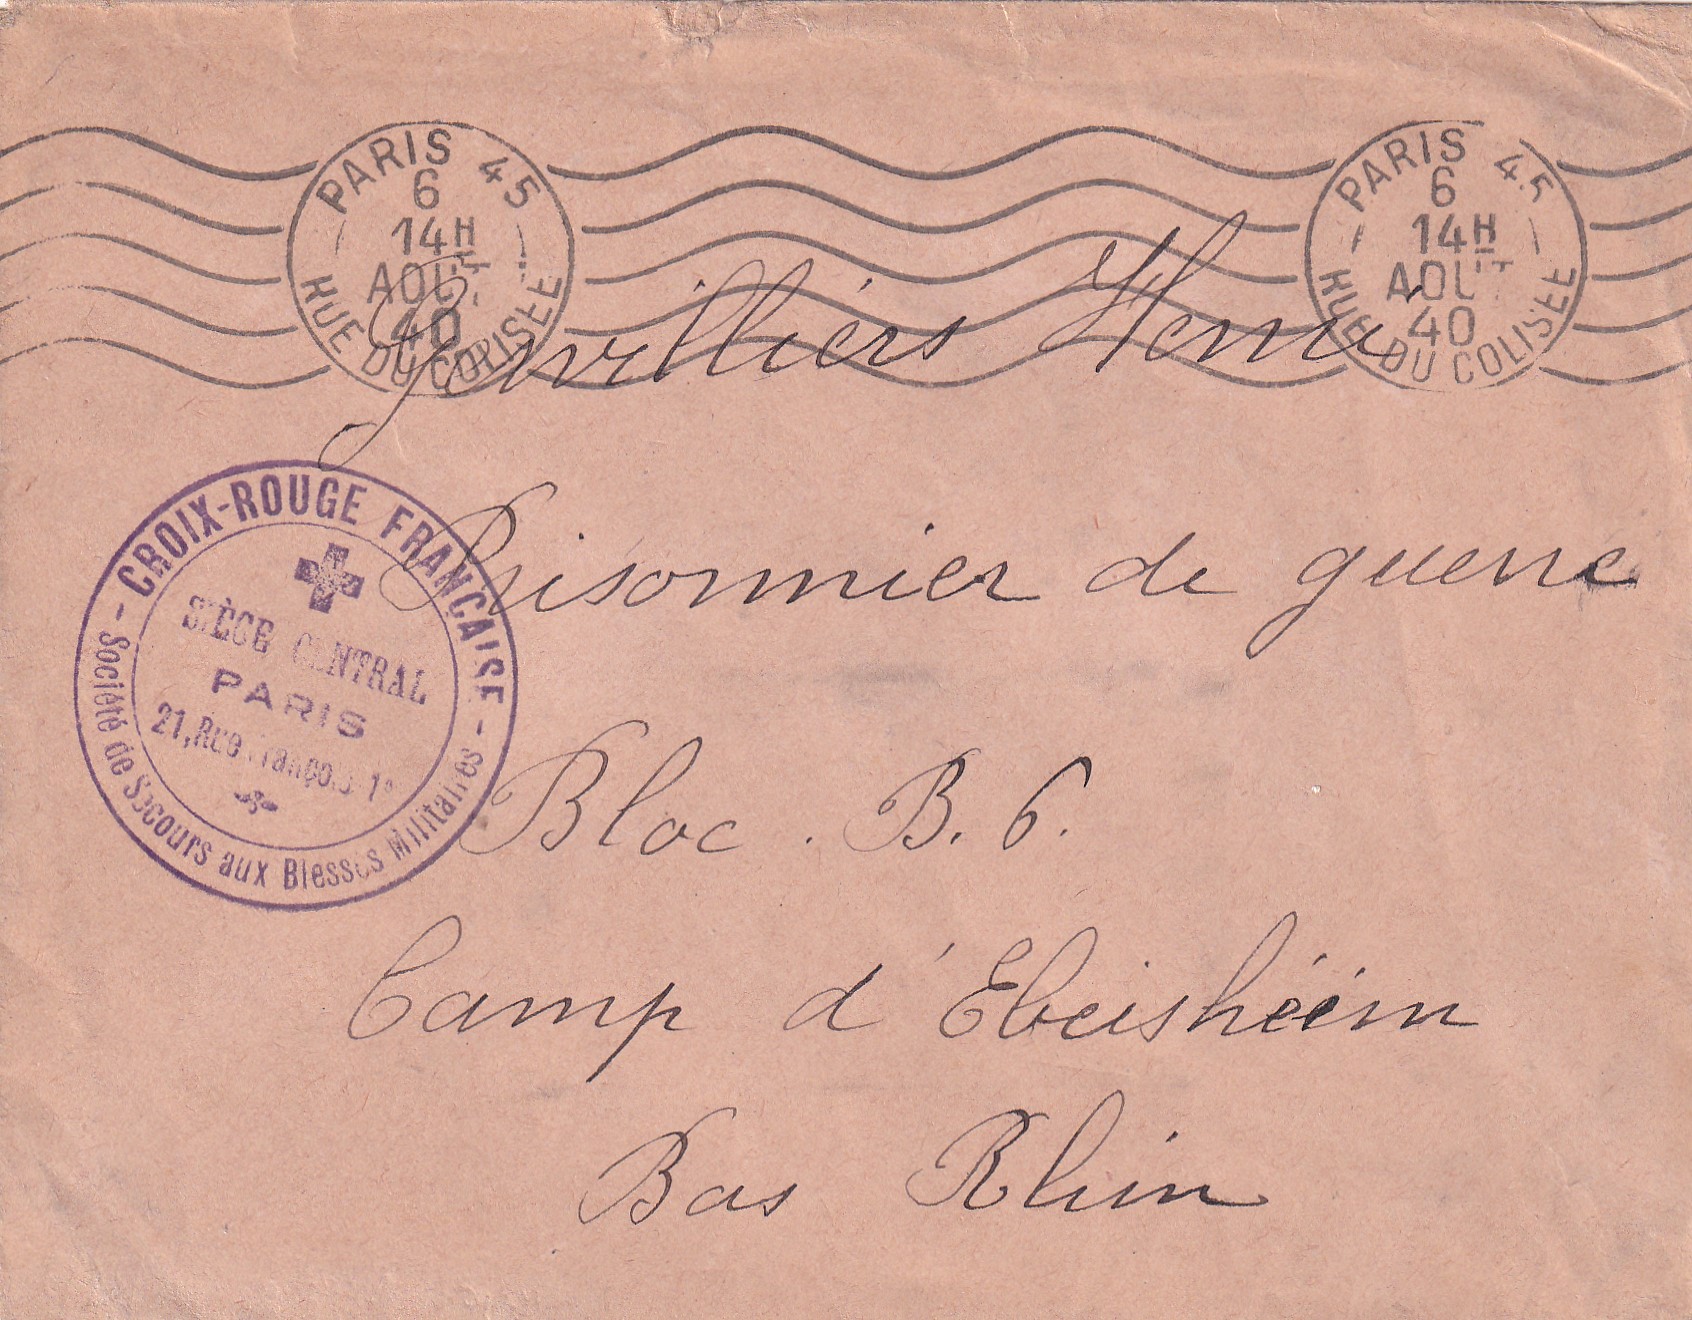 PARIS 45
6
14H
AOUT
40
RUE DU COLISEE
PARIS 45
6
14H
AOUT
40
RUE DU COLISEE
Henri
CROIX-ROUGE FRANÇAISE
SIÈGE CENTRAL
PARIS
21, Rue François 1er
Société de Secours aux Blessés Militaires
Prisonnier de guerre
Bloc . B. 6.
Camp d'Ebeishéim
Bas Rhin